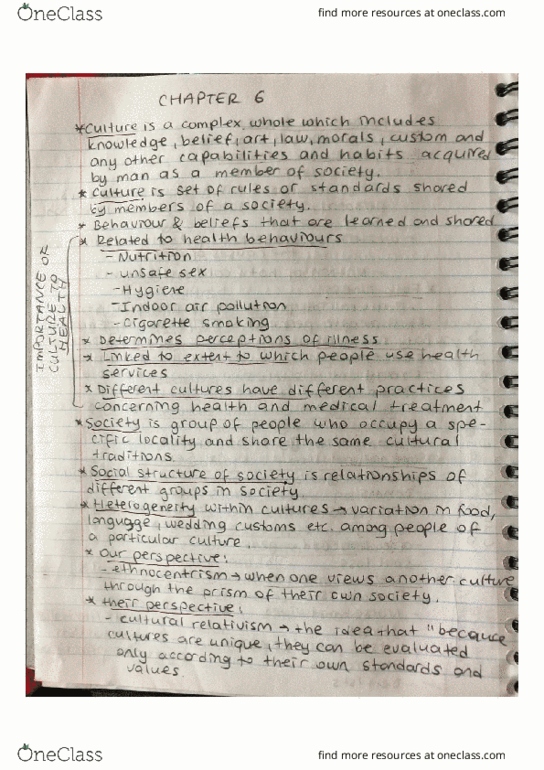 OneClass
find more resources at oneclass.com
CHAPTER 6
*Culture is a complex whole which includes
knowledge, belief, art, law, morals, custom and
any other capabilities and habits acquired
by man as a member of society.
* Culture is set of rules or standards shared
by members of a society.
* Behaviour & beliefs that are learned and shared
* Related to health behaviours
- Nutrition
- unsafe sex
- Hygiene
- Indoor air pollution
- Cigarette smoking
* Determines perceptions of illness
* Linked to extent to which people use health
services
* Different cultures have different practices
concerning health and medical treatment
IMPORTANCE OF
CULTURE TO
HEALTH
*Society is group of people who occupy a spe-
cific locality and share the same cultural
traditions.
* Social structure of society is relationships of
different groups in society.
* Heterogeneity within cultures → variation in food,
language, wedding customs etc. among people of
a particular culture.
* Our perspective:
- ethnocentrism → when one views another culture
through the prism of their own society.
* their perspective:
- cultural relativism → the idea that "because
cultures are unique, they can be evaluated
only according to their own standards and
values.
OneClass
find more resources at oneclass.com